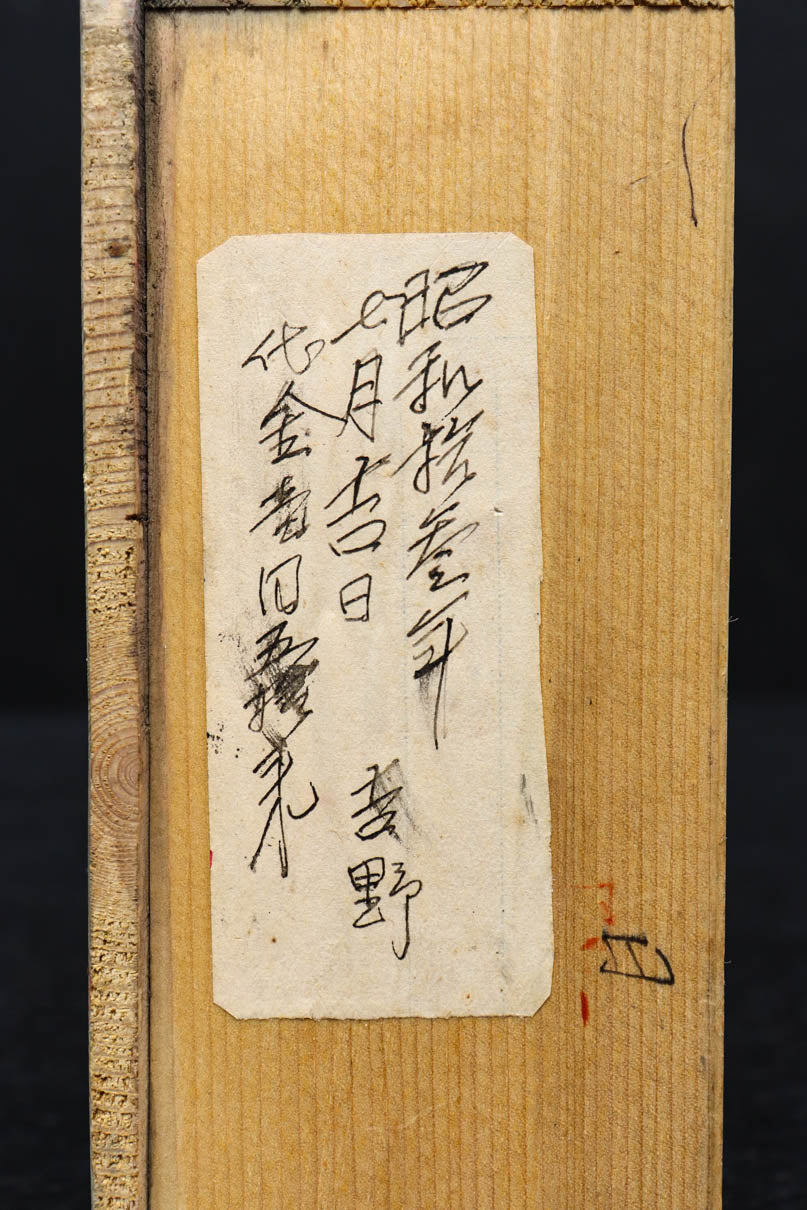 昭和拾叁年
七月吉日
野
代金壱円五拾銭